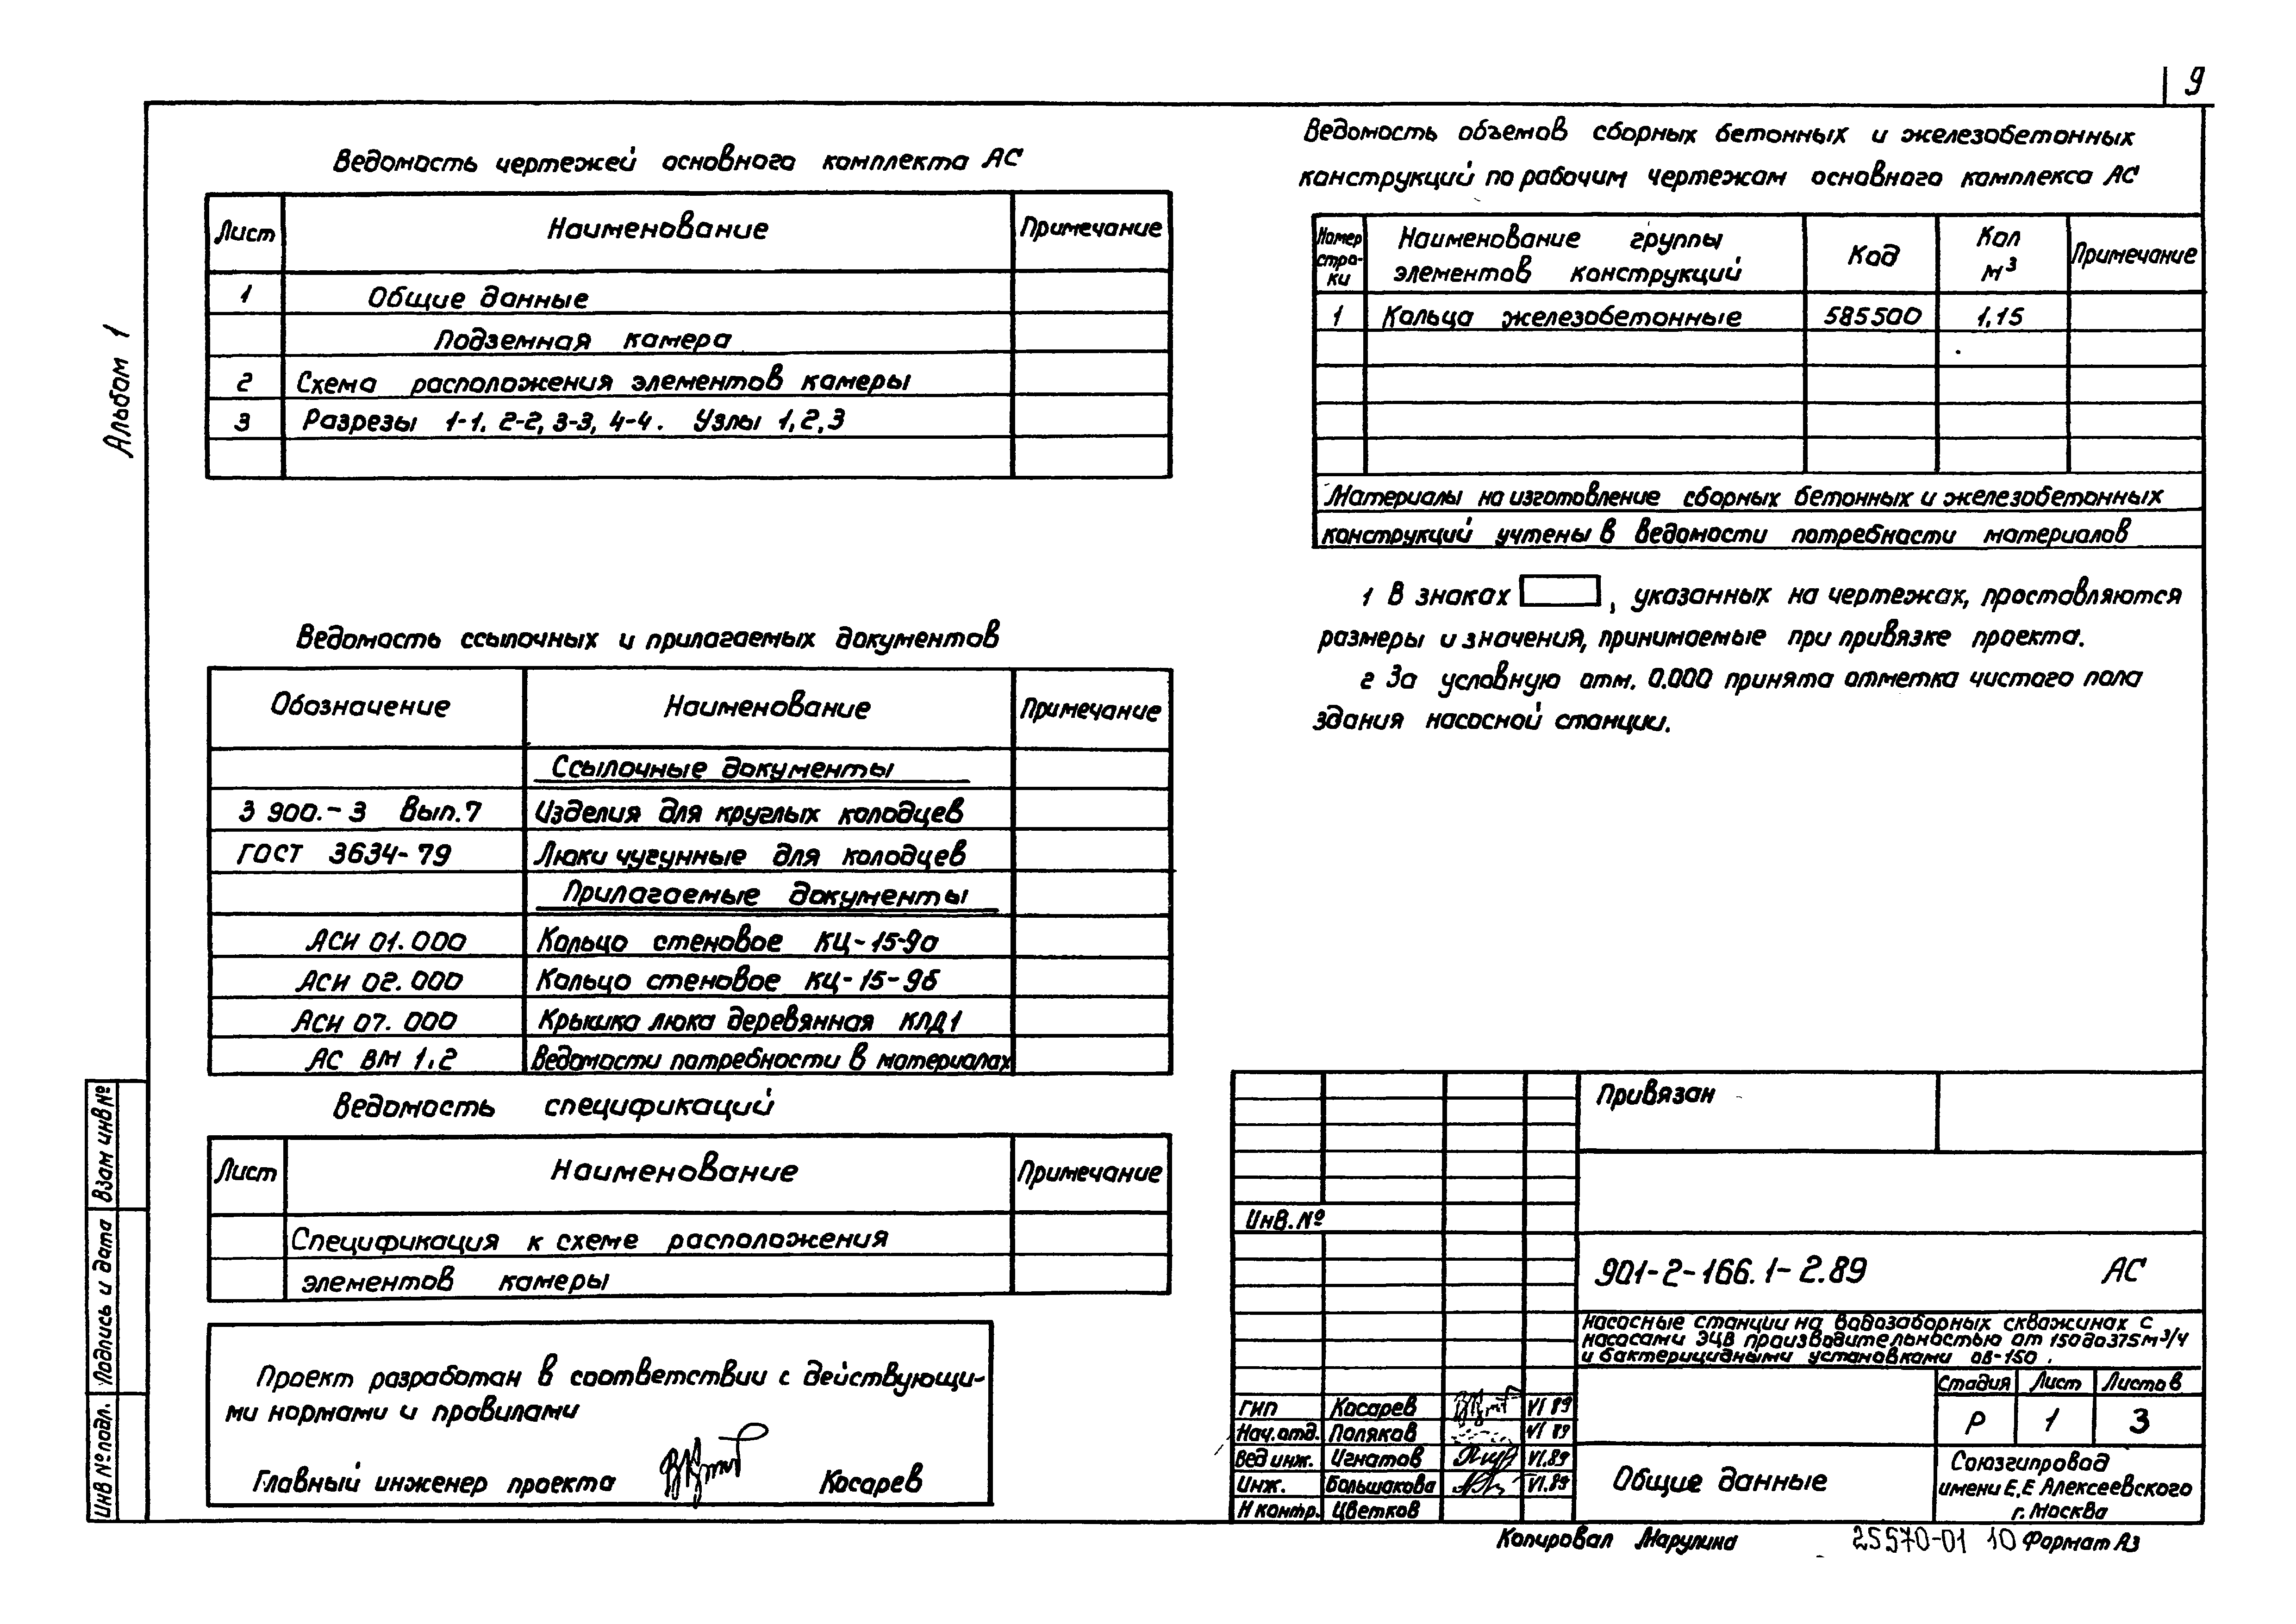 9
Альбом 1
Ведомость чертежей основного комплекта АС
Лист Наименование Примечание
1 Общие данные
Подземная камера
2 Схема расположения элементов камеры
3 Разрезы 1-1, 2-2, 3-3, 4-4. Узлы 1,2,3
Ведомость ссылочных и прилагаемых документов
Обозначение Наименование Примечание
Ссылочные документы
3 900.-3 Вып.7 Изделия для круглых колодцев
ГОСТ 3634-79 Люки чугунные для колодцев
Прилагаемые документы
АСИ 01.000 Кольцо стеновое КЦ-15-9а
АСИ 02.000 Кольцо стеновое КЦ-15-9б
АСИ 07.000 Крышка люка деревянная КЛД1
АС ВМ 1.2 Ведомости потребности в материалах
Ведомость спецификаций
Лист Наименование Примечание
Спецификация к схеме расположения
элементов камеры
Проект разработан в соответствии с действующи-
ми нормами и правилами
Главный инженер проекта Косарев
Ведомость объемов сборных бетонных и железобетонных
конструкций по рабочим чертежам основного комплекса АС
Номер стро-ки Наименование группы элементов конструкций Код Кол м³ Примечание
1 Кольца железобетонные 585500 1,15
Материалы на изготовление сборных бетонных и железобетонных
конструкций учтены в ведомости потребности материалов
1 В знаках , указанных на чертежах, проставляются
размеры и значения, принимаемые при привязке проекта.
2 За условную отм. 0.000 принята отметка чистого пола
здания насосной станции.
Привязан
Инв.№
901-2-166.1-2.89 АС
Насосные станции на водозаборных скважинах с
насосами ЭЦВ производительностью от 150 до 375 м³/ч
и бактерицидными установками ОВ-150.
Стадия Лист Листов
Р 1 3
ГИП Косарев VI 89
Нач.отд. Поляков VI 89
Вед инж. Игнатов VI.89
Инж. Большакова VI.89
Н контр. Цветков
Общие данные
Союзгипровод
имени Е.Е Алексеевского
г. Москва
Копировал Марулина 25570-01 10 Формат А3
Инв № подл. Подпись и дата Взам инв №